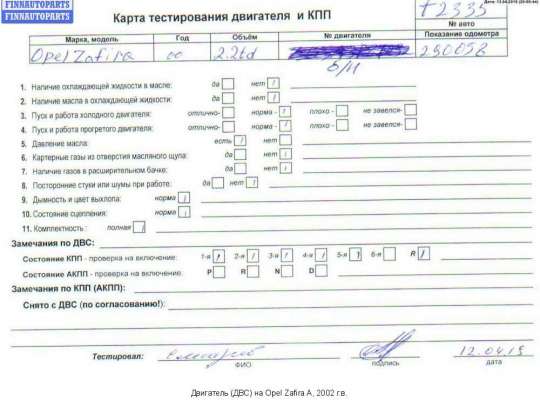 FINNAUTOPARTS
FINNAUTOPARTS
Карта тестирования двигателя и КПП
т2335
№ авто
Марка, модель Год Объём № двигателя Показание одометра
Opel Zafira 00 2.2td
б/н
1. Наличие охлаждающей жидкости в масле: да нет
2. Наличие масла в охлаждающей жидкости: да нет
3. Пуск и работа холодного двигателя: отлично- норма- плохо- не завелся-
4. Пуск и работа прогретого двигателя: отлично- норма- плохо- не завелся-
5. Давление масла: есть нет
6. Картерные газы из отверстия масляного щупа: да нет
7. Наличие газов в расширительном бачке: да нет
8. Посторонние стуки или шумы при работе: да нет
9. Дымность и цвет выхлопа: норма
10. Состояние сцепления: норма
11. Комплектность : полная
Замечания по ДВС:
Состояние КПП - проверка на включение: 1-я 2-я 3-я 4-я 5-я 6-я R
Состояние АКПП - проверка на включение: P R N D
Замечания по КПП (АКПП):
Снято с ДВС (по согласованию!):
Тестировал: 12.04.19
ФИО подпись дата
Двигатель (ДВС) на Opel Zafira A, 2002 г.в.